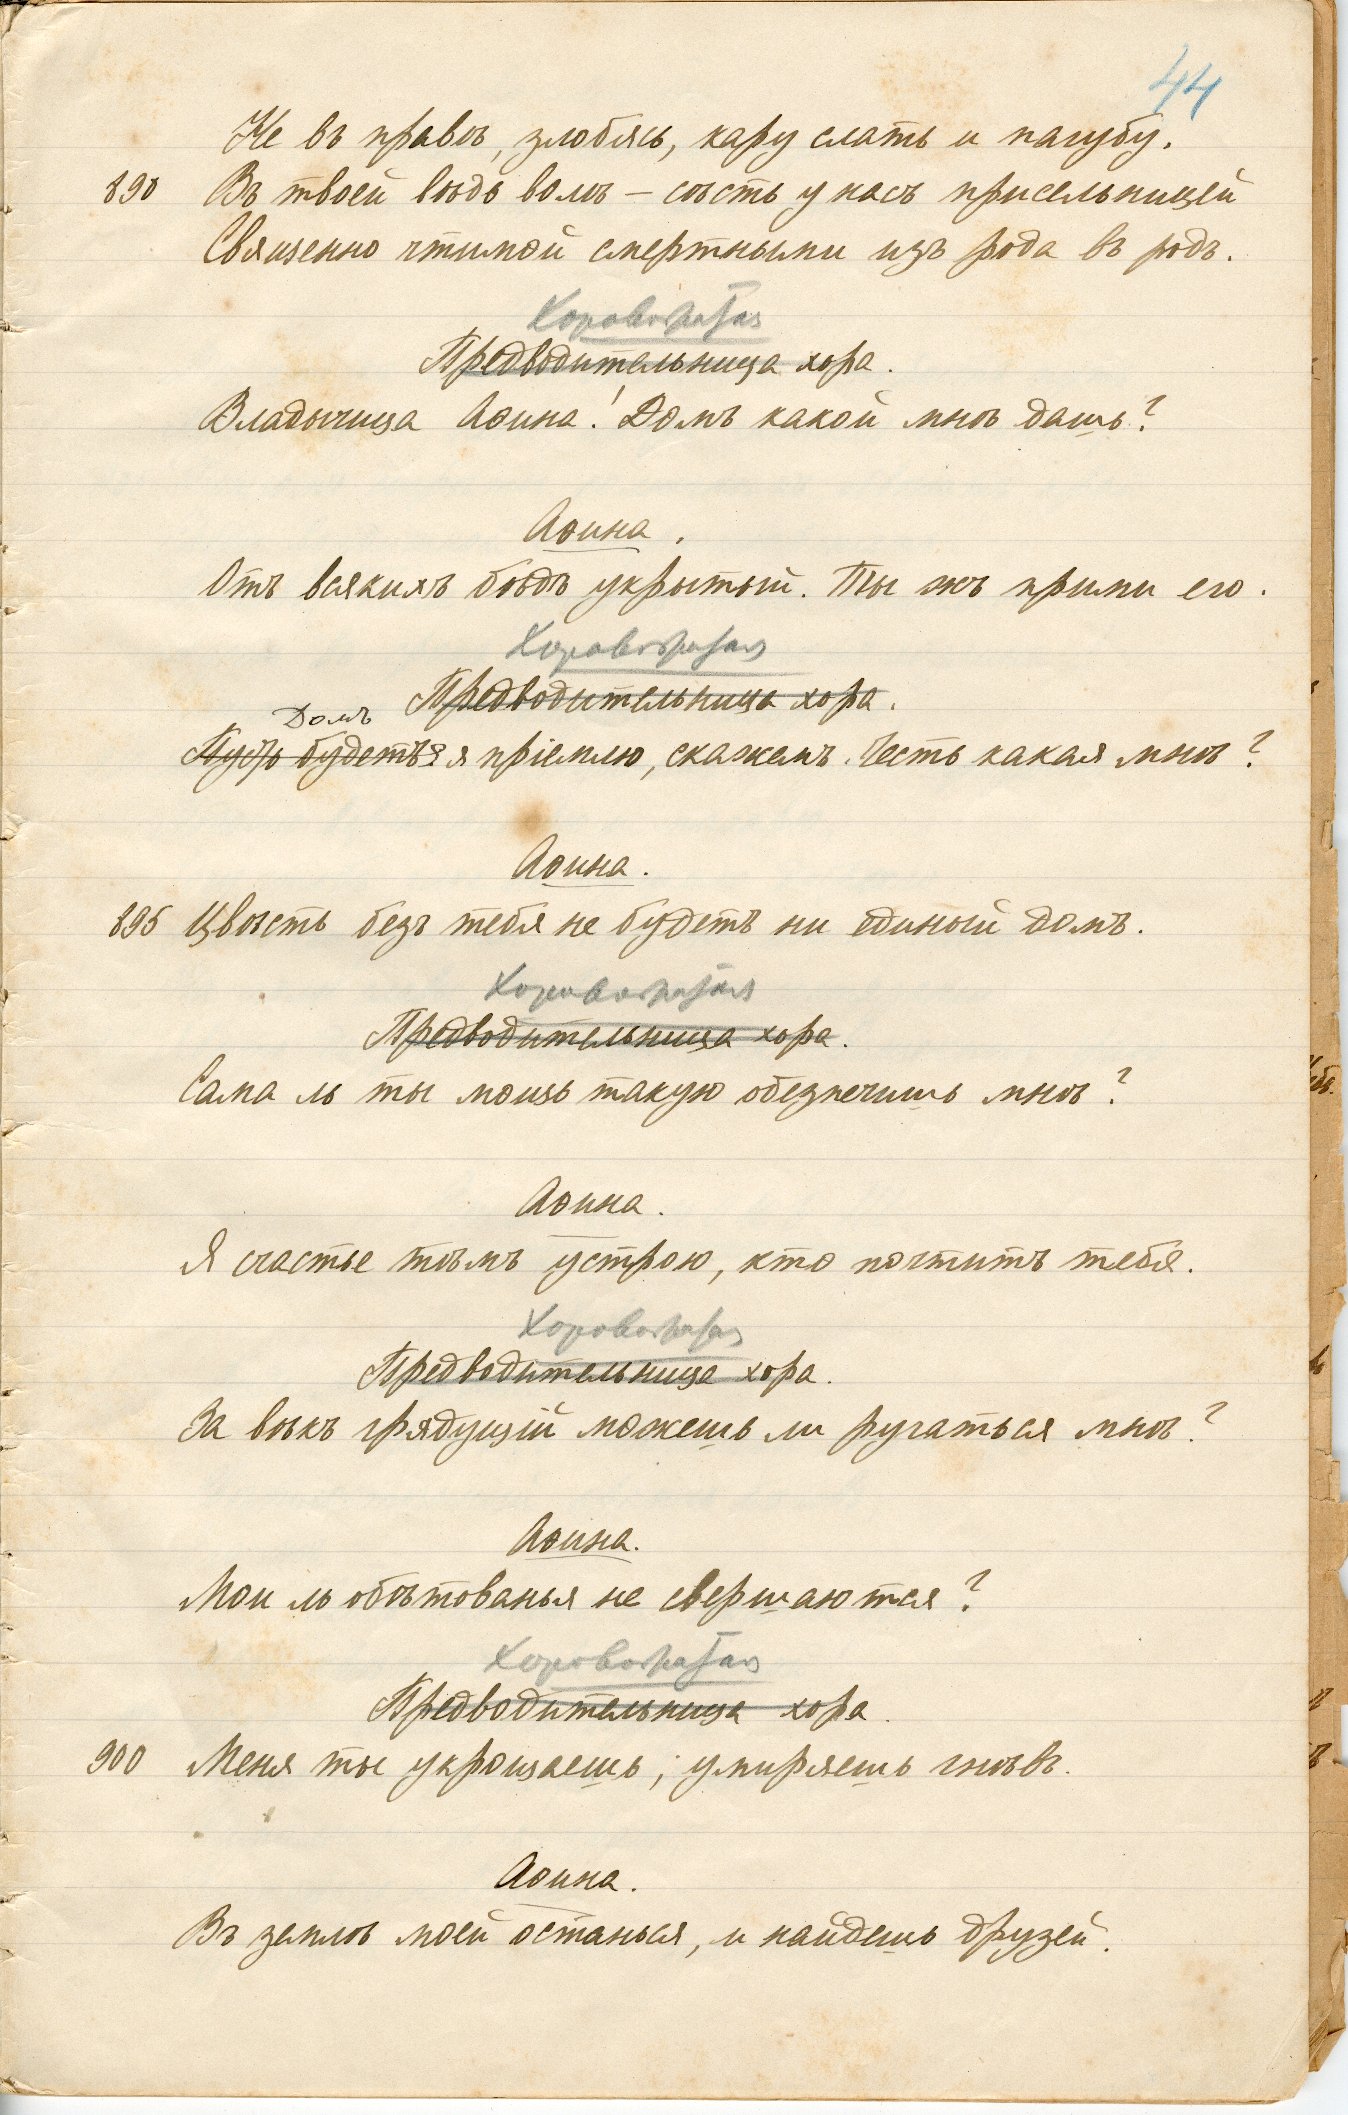 44
Не въ правѣ, злобясь, кару слать и пагубу.
890 Въ твоей вѣдь волѣ – сѣсть у насъ присельницей
Священно чтимой смертными изъ рода въ родъ.
Хоровожатая
Предводительница хора.
Владычица Аѳина! Домъ какой мнѣ дашь?
Аѳина.
Отъ всякихъ бѣдъ укрытый. Ты жъ прими его.
Хоровожатая
Предводительница хора.
Домъ
Пусть будетъ я пріемлю, скажемъ. Честь какая мнѣ?
Аѳина.
895 Цвѣсть безъ тебя не будетъ ни единый домъ.
Хоровожатая
Предводительница хора.
Сама ль ты мощь такую обезпечишь мнѣ?
Аѳина.
Я счастье тѣмъ устрою, кто почтитъ тебя.
Хоровожатая
Предводительница хора.
За вѣкъ грядущій можешь ли ручаться мнѣ?
Аѳина.
Мои ль обѣтованья не свершаются?
Хоровожатая
Предводительница хора.
900 Меня ты укрощаешь; умиряешь гнѣвъ.
Аѳина.
Въ землѣ моей останься, и найдешь друзей.